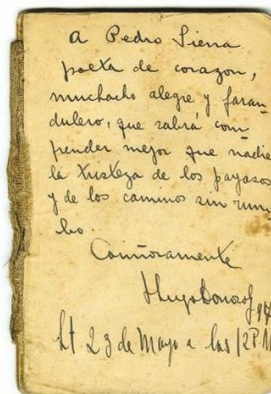 A Pedro Sierra
poeta de corazon,
muchacho alegre y faran
dulero, que sabrá com
prender mejor que nadie
la tristeza de los payasos
y de los caminos sin rum
bo.
Cariñosamente
Hugo Donoso
23 de Mayo a las 12 P.M